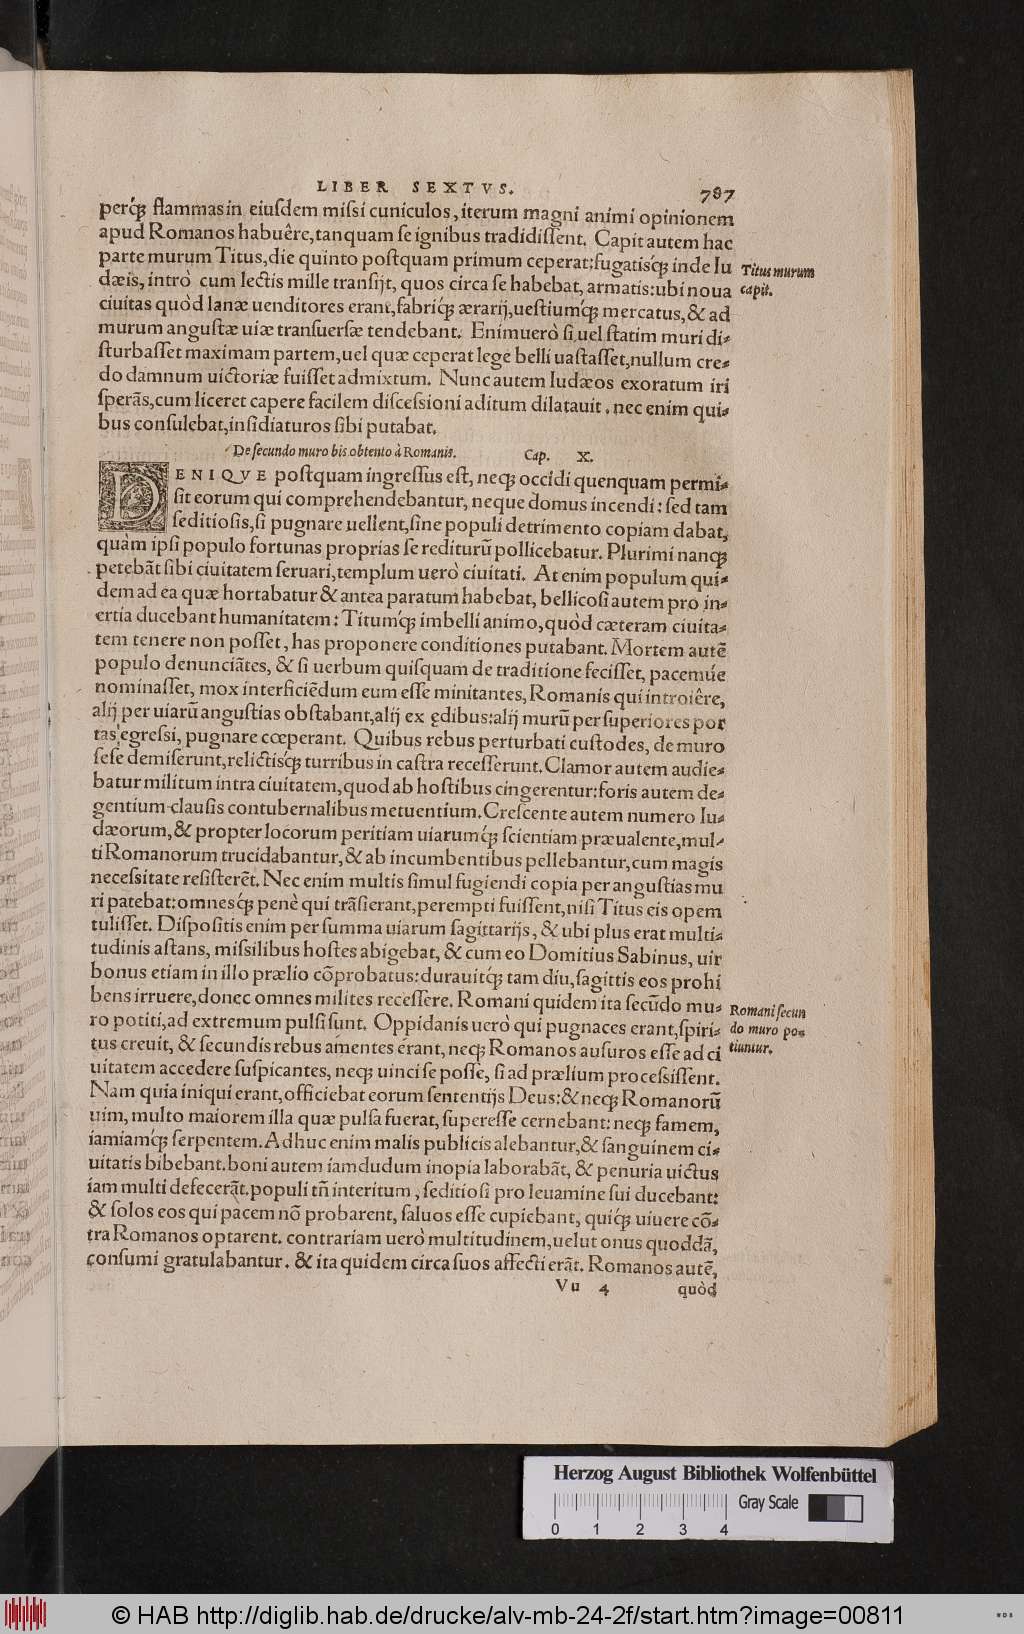 LIBER SEXTVS. 787
perq́ꝫ flammas in eiuſdem miſsi cuniculos, iterum magni animi opinionem
apud Romanos habuêre, tanquam ſe ignibus tradidiſſent. Capit autem hac
parte murum Titus, die quinto poſtquam primum ceperat: fugatisq́ꝫ inde Iu
dæis, intrò cum lectis mille tranſijt, quos circa ſe habebat, armatis: ubi noua
ciuitas quòd lanæ uenditores erant, fabriq́ꝫ ærarij, ueſtiumq́ꝫ mercatus, & ad
murum anguſtæ uiæ tranſuerſæ tendebant. Enimuerò ſi uel ſtatim muri di-
ſturbaſſet maximam partem, uel quæ ceperat lege belli uaſtaſſet, nullum cre-
do damnum uictoriæ fuiſſet admixtum. Nunc autem Iudæos exoratum iri
ſperãs, cum liceret capere facilem diſceſsioni aditum dilatauit. nec enim qui-
bus conſulebat, inſidiaturos ſibi putabat.
Titus murum
capit.
De ſecundo muro bis obtento à Romanis. Cap. X.
DENIQVE poſtquam ingreſſus eſt, neqꝫ occidi quenquam permi-
ſit eorum qui comprehendebantur, neque domus incendi: ſed tam
ſeditioſis, ſi pugnare uellent, ſine populi detrimento copiam dabat,
quàm ipſi populo fortunas proprias ſe rediturũ pollicebatur. Plurimi nanqꝫ
petebãt ſibi ciuitatem ſeruari, templum uerò ciuitati. At enim populum qui-
dem ad ea quæ hortabatur & antea paratum habebat, bellicoſi autem pro in-
ertia ducebant humanitatem: Titumq́ꝫ imbelli animo, quòd cæteram ciuita-
tem tenere non poſſet, has proponere conditiones putabant. Mortem autẽ
populo denunciãtes, & ſi uerbum quiſquam de traditione feciſſet, pacemúe
nominaſſet, mox interficiẽdum eum eſſe minitantes, Romanis qui introiêre,
alij per uiarũ anguſtias obſtabant, alij ex ędibus: alij murũ per ſuperiores por
tas egreſsi, pugnare cœperant. Quibus rebus perturbati cuſtodes, de muro
ſeſe demiſerunt, relictisq́ꝫ turribus in caſtra receſſerunt. Clamor autem audie-
batur militum intra ciuitatem, quod ab hoſtibus cingerentur: foris autem de-
gentium clauſis contubernalibus metuentium. Creſcente autem numero Iu-
dæorum, & propter locorum peritiam uiarumq́ꝫ ſcientiam præualente, mul-
ti Romanorum trucidabantur, & ab incumbentibus pellebantur, cum magis
neceſsitate reſiſterẽt. Nec enim multis ſimul fugiendi copia per anguſtias mu
ri patebat: omnesq́ꝫ penè qui trãſierant, perempti fuiſſent, niſi Titus eis opem
tuliſſet. Diſpoſitis enim per ſumma uiarum ſagittarijs, & ubi plus erat multi-
tudinis aſtans, miſsilibus hoſtes abigebat, & cum eo Domitius Sabinus, uir
bonus etiam in illo prælio cõprobatus: durauitq́ꝫ tam diu, ſagittis eos prohi
bens irruere, donec omnes milites receſſere. Romani quidem ita ſecũdo mu-
ro potiti, ad extremum pulſi ſunt. Oppidanis uerò qui pugnaces erant, ſpiri-
tus creuit, & ſecundis rebus amentes erant, neqꝫ Romanos auſuros eſſe ad ci
uitatem accedere ſuſpicantes, neqꝫ uinci ſe poſſe, ſi ad prælium proceſsiſſent.
Nam quia iniqui erant, officiebat eorum ſententijs Deus: & neqꝫ Romanorũ
uim, multo maiorem illa quæ pulſa fuerat, ſupereſſe cernebant: neqꝫ famem,
iamiamq́ꝫ ſerpentem. Adhuc enim malis publicis alebantur, & ſanguinem ci-
uitatis bibebant. boni autem iamdudum inopia laborabãt, & penuria uictus
iam multi defecerãt. populi tñ interitum, ſeditioſi pro leuamine ſui ducebant:
& ſolos eos qui pacem nõ probarent, ſaluos eſſe cupiebant, quiq́ꝫ uiuere cõ-
tra Romanos optarent. contrariam uerò multitudinem, uelut onus quoddã,
conſumi gratulabantur. & ita quidem circa ſuos affecti erãt. Romanos autẽ,
Romani ſecun
do muro po-
tiuntur.
Vu 4 quòd
Herzog August Bibliothek Wolfenbüttel
Gray Scale
0 1 2 3 4
© HAB http://diglib.hab.de/drucke/alv-mb-24-2f/start.htm?image=00811